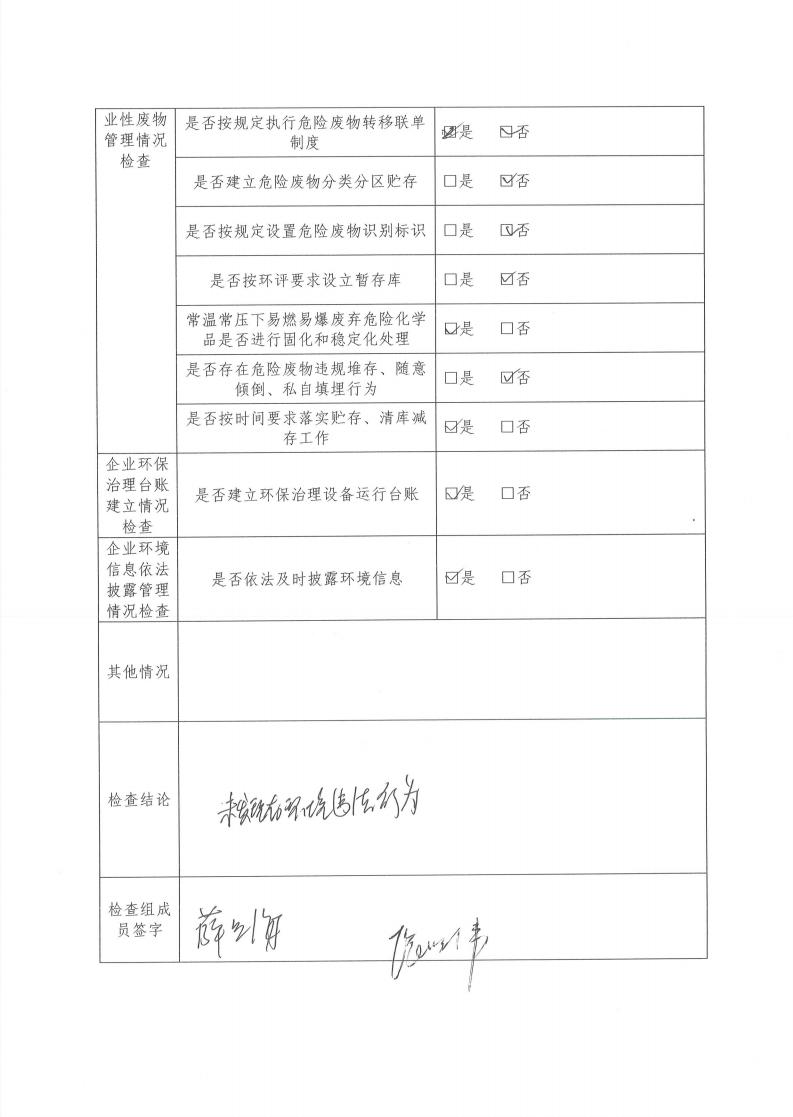 业性废物
管理情况
检查
是否按规定执行危险废物转移联单
制度
☑是 ☑否
是否建立危险废物分类分区贮存
☐是 ☑否
是否按规定设置危险废物识别标识
☐是 ☑否
是否按环评要求设立暂存库
☐是 ☑否
常温常压下易燃易爆废弃危险化学
品是否进行固化和稳定化处理
☑是 ☐否
是否存在危险废物违规堆存、随意
倾倒、私自填埋行为
☐是 ☑否
是否按时间要求落实贮存、清库减
存工作
☑是 ☐否
企业环保
治理台账
建立情况
检查
是否建立环保治理设备运行台账
☑是 ☐否
企业环境
信息依法
披露管理
情况检查
是否依法及时披露环境信息
☑是 ☐否
其他情况
检查结论
未发现有环境违法行为
检查组成
员签字